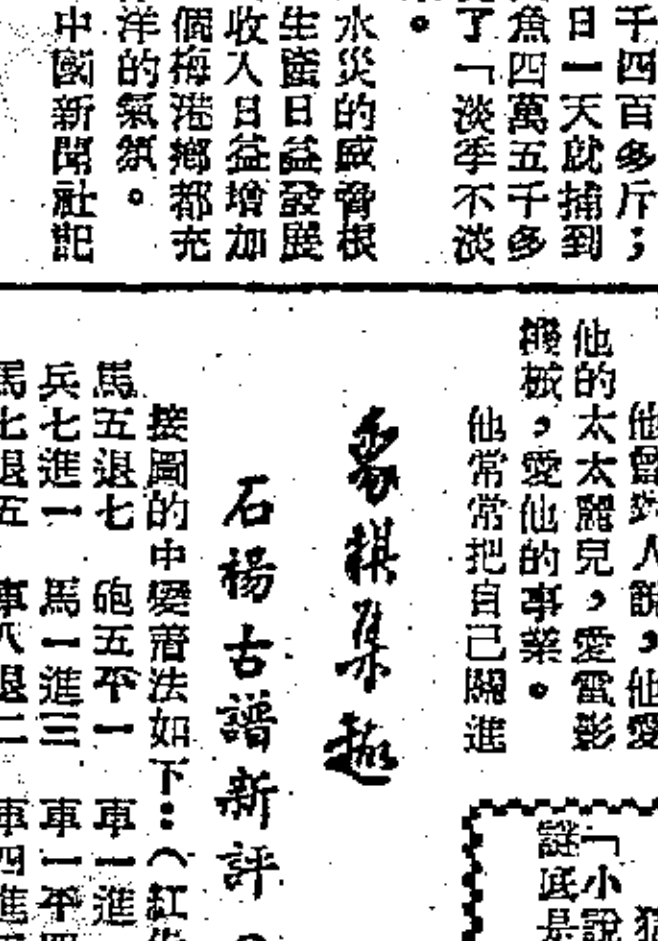 千四百多斤；
日一天就捕到
魚四萬五千多
了「淡季不淡
。
水災的威脅根
生產日益發展
收入日益增加
個梅港鄉都充
洋的氣氛。
中國新聞社記
他曾對人說，他愛
他的太太麗兒，愛電影
機械，愛他的事業。
他常常把自己關進
象棋集趣
石楊古譜新評
接圖的中變着法如下：（紅
馬五退七 砲五平一 車一進
兵七進一 馬一進三 車一平四
馬七退五 車八退二 車四進
猜
「小說
謎底是